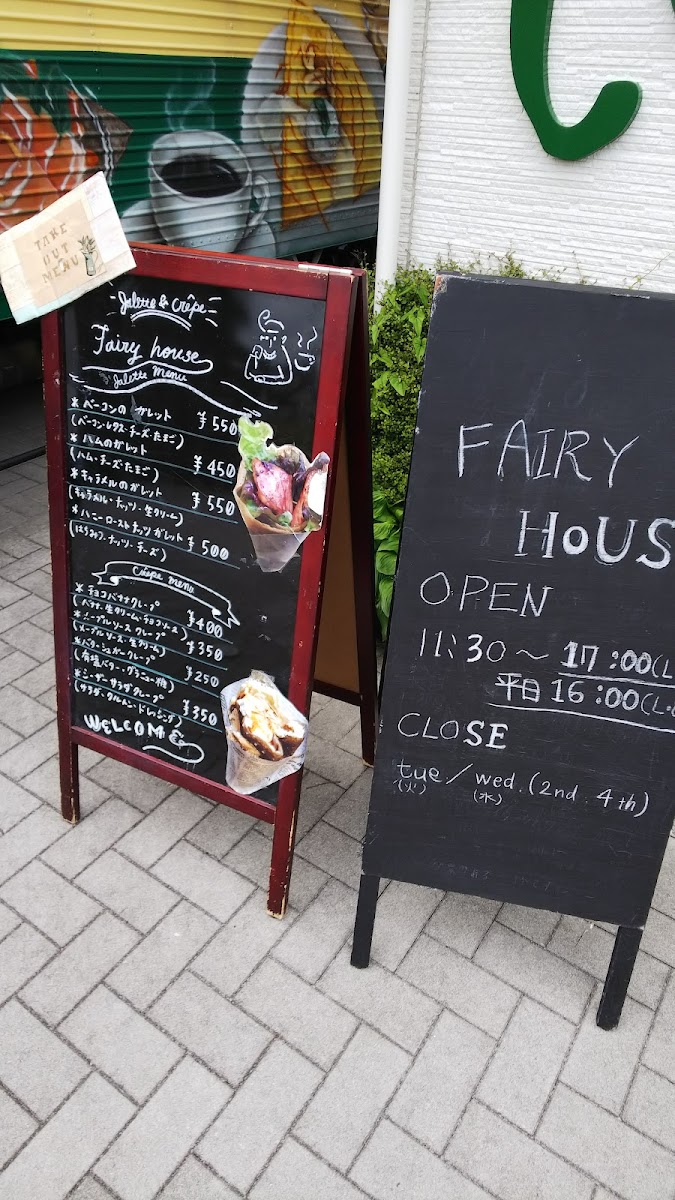 TAKE
OUT
MENU
Galette & Crêpe
Fairy house
Galette menu
* ベーコンの ガレット ¥550
(ベーコン・レタス・チーズ・たまご)
* ハムのガレット ¥450
(ハム・チーズ・たまご)
* キャラメルのガレット ¥550
(キャラメル・ナッツ・生クリーム)
* ハニーローストナッツ ガレット ¥500
(はちみつ・ナッツ・チーズ)
Crêpe menu
* チョコバナナクレープ ¥400
(バナナ・生クリーム・チョコソース)
* メープルソース クレープ ¥350
(メープルソース・生クリーム)
* バターシュガークレープ ¥250
(有塩バター・グラニュー糖)
* シーザーサラダクレープ ¥350
(サラダ・クルトン・ドレッシング)
WELCOME
FAIRY
HOUS
OPEN
11:30～17:00(L
平日 16:00(L.
CLOSE
tue/wed.(2nd.4th)
(火) (水)